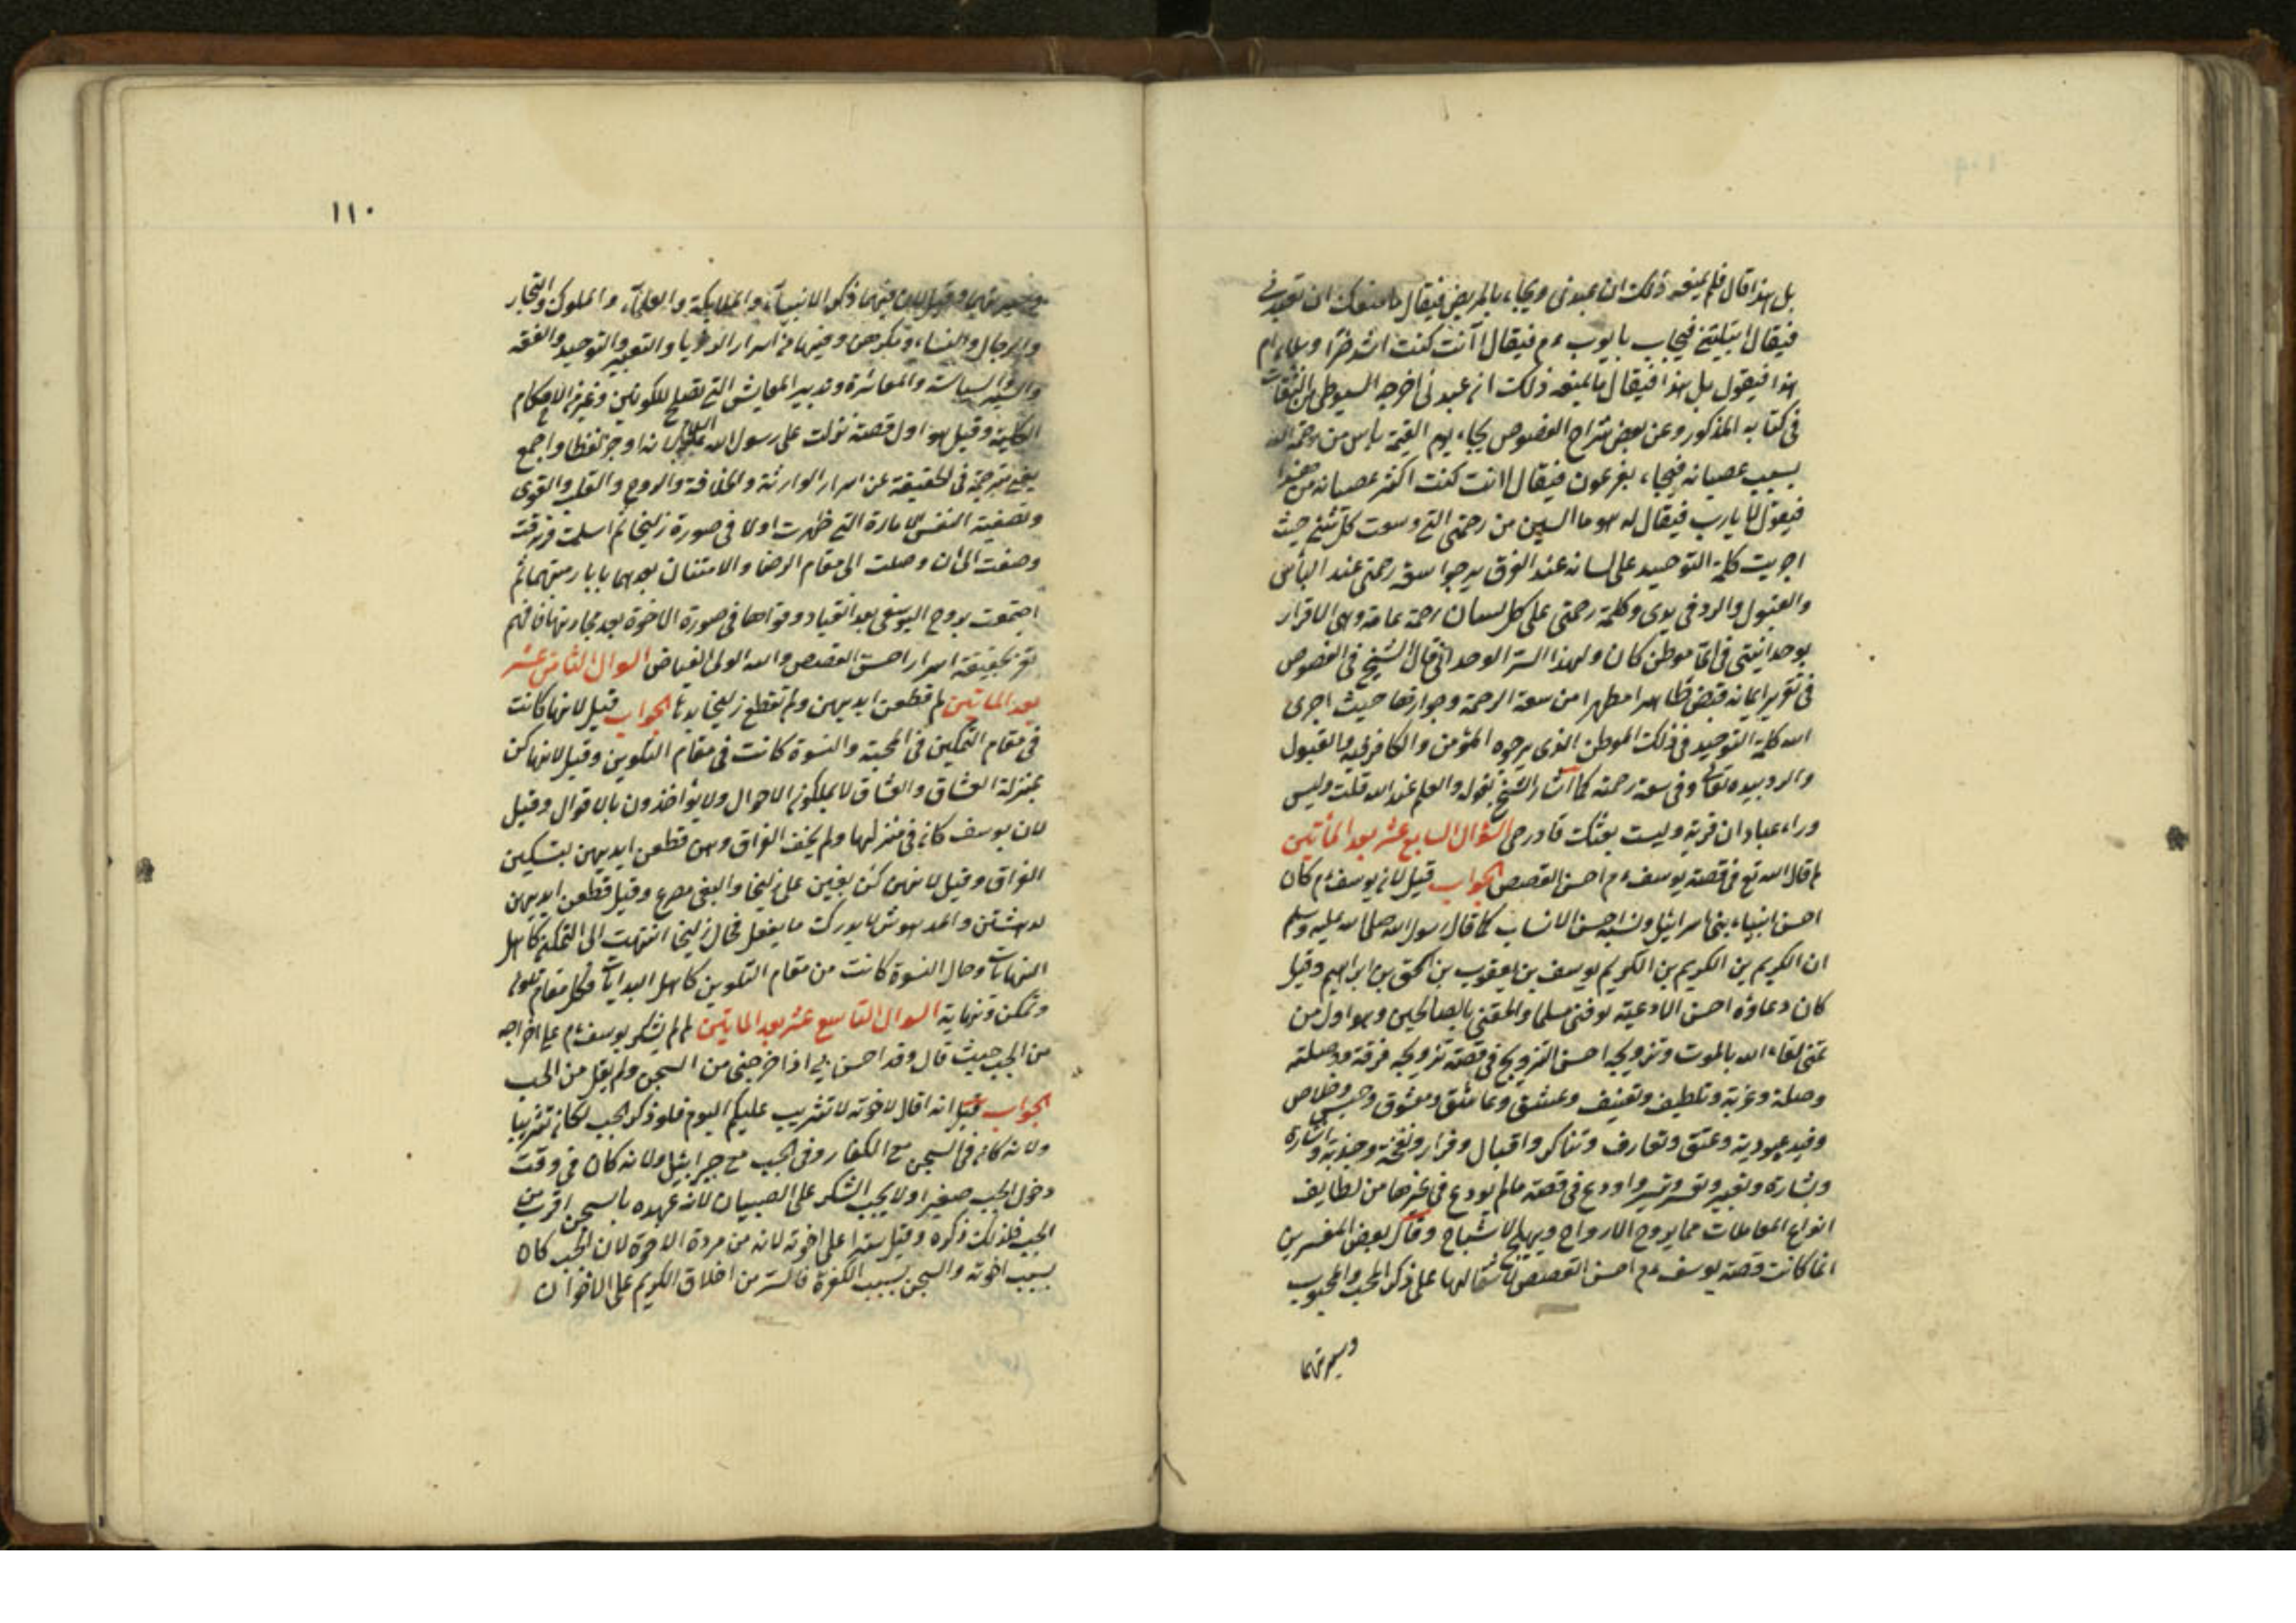 بل هذا قال فلم يمنعه ذلك ان عبدنى ويجاء بالمريض فيقال ما منعك ان تعبدنى
فيقال ابتليتنى فيجاب بايوب ءم فيقال اانت كنت اشد ضرا وبلاء ام
هذا فيقول بل هذا فيقال لم يمنعه ذلك ان عبدنى اخرجه السيوطى من الثقات
فى كتابه المذكور وعن بعض شراح الفصوص يجاء يوم القيمة بآيس من رحمة الله
بسبب عصيانه فيجاء بفرعون فيقال اانت كنت اكثر عصيانا من هذا
فيقول لا يارب فيقال له هو ما ايس من رحمتى التى وسعت كل شئ حيث
اجريت كلمة التوحيد على لسانه عند الغرق يرجوا سعة رحمتى عند البأس
والقبول والرد فى يدى وكلمة رحمتى على كل لسان رحمة عامة وهى الاقرار
بوحدانيتى فى اى موطن كان ولهذا السر الوحدانى قال الشيخ فى الفصوص
فى تقرير ايمانه فقبض طاهرا مطهرا من سعة الرحمة وجوازها حيث اجرى
الله كلمة التوحيد فى ذلك الموطن الذى يرجوه المؤمن والكافر فيه والقبول
والرد بيده تعالى وفى سعة رحمته كما اشار الشيخ بقوله والعلم عند الله قلت وليس
وراء عبادان قرية وليست بعثك قادرحى السؤال السابع عشر بعد المأتين
لم قال الله تع فى قصة يوسف ءم احسن القصص الجواب قيل لان يوسف ءم كان
احسن انبياء بنى اسرائيل ونسبه احسن الانساب كما قال رسول الله صلى الله عليه وسلم
ان الكريم بن الكريم بن الكريم يوسف بن يعقوب بن اسحق بن ابراهيم وقيل
كان دعاؤه احسن الادعية توفنى مسلما والحقنى بالصالحين وهو اول من
تمنى لقاء الله بالموت وتزويجه احسن التزويج فى قصة تزويجه فرقة ووصلته
وصلة وغربة وتلطيف وتعنيف وعشق وعاشق ومعشوق وحبس وخلاص
وقيد عبودية وعتق وتعارف وتناكر واقبال وفرار ونفحة وجذبة واشارة
وبشارة وتعبير وتفسير وتيسير واودع فى قصته مالم يودع فى غيرها من لطايف
انواع المعاملات مما يروح الارواح ويهيج الاشباح وقال بعض المفسرين
انما كانت قصة يوسف ءم احسن القصص لاشتمالها على ذكر المحب والمحبوب
وسيرتهما
١١٠
وسيرتهما وقيل لان فيها ذكر الانبيآء والملايكة والعلمآء والملوك والتجار
والرجال والنساء ومكرهن وفيها من اسرار الرؤيا والتعبير والتوحيد والفقه
والسير والسياسة والمعاشرة وتدبير المعايش التى تصلح للكونين وغيره الاحكام
الكلية وقيل هو اول قصة نزلت على رسول الله عليه السلام لانه اوجز لفظا واجمع
يعنى مترجمة فى الحقيقة عن اسرار الوارثة والخلافة والروح والقلب والقوى
وتصفية النفس الامارة التى ظهرت اولا فى صورة زليخا ثم اسلمت وترقت
وصفت الى ان وصلت الى مقام الرضا والامتنان
اجتمعت بروح اليوسفى بعد انقياد وقواها فى صورة الاخوة بعد محاربتها فافهم
تفز بحقيقة اسرار احسن القصص والله الولى الفياض السوال الثامن عشر
بعد الماتين لم قطعن ايديهن ولم تقطع زليخا يدها الجواب قيل لانها كانت
فى مقام التمكين فى المحبة والنسوة كانت فى مقام التلوين وقيل لانها كن
بمنزلة العشاق والعشاق لا يملكون الاحوال ولا يؤاخذون بالاقوال وقيل
لان يوسف كان فى منزلها ولم يخف الفراق وهن قطعن ايديهن بسكين
الفراق وقيل لانهن كن بغين على زليخا والبغى مصرع وقيل قطعن ايديهن
لدهشتهن والمدهوش لا يدرك ما يفعل فحال زليخا انتهت الى التمكن كاهل
النهايات وحال النسوة كانت من مقام التلوين كاهل البدايات ولكل مقام تلون
وتمكن ونهاية السوال التاسع عشر بعد الماتين لم لم يشكر يوسف ءم على اخراجه
من الجب حيث قال وقد احسن بى اذ اخرجنى من السجن ولم يقل من الجب
الجواب قيل انه قال لاخوته لا تثريب عليكم اليوم فلو ذكر الجب لكان تثريبا
ولانه كان فى السجن مع الكفار وفى الجب مع جبرائيل ولانه كان فى وقت
دخول الجب صغيرا ولا يجب الشكر على الصبيان لانه عهده بالسجن اقرب من
الجب فلذلك ذكره وقيل سترا على اخوته لانه من مروة الاخوة لان الجب كان
بسبب اخوته والسجن بسبب الكفرة فالستر من اخلاق الكريم على الاخوان